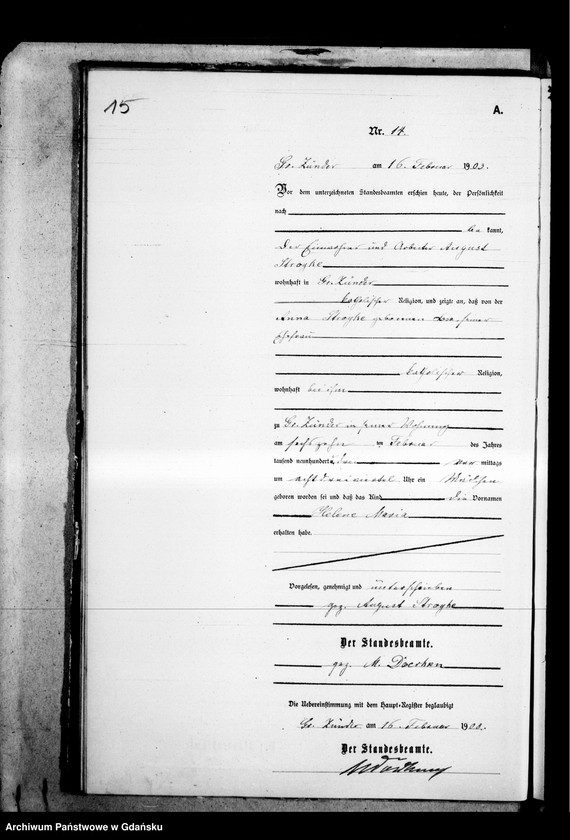 15
A.
Nr. 14.
Gr. Zünder am 16. Februar 1903.
Vor dem unterzeichneten Standesbeamten erschien heute, der Persönlichkeit
nach
be kannt,
Der Einwohner und Arbeiter August
Stroyke
wohnhaft in Gr. Zünder
katholischer Religion, und zeigte an, daß von der
Anna Stroyke geborenen seiner
Ehefrau
katholischer Religion,
wohnhaft bei ihm
zu Gr. Zünder in seiner Wohnung
am sechszehn ten Februar des Jahres
tausend neunhundert drei vor mittags
um acht dreiviertel Uhr ein Mädchen
geboren worden sei und daß das Kind die Vornamen
Helene Maria
erhalten habe.
Vorgelesen, genehmigt und unterschrieben
gez. August Stroyke
Der Standesbeamte.
gez. M. Doerksen
Die Uebereinstimmung mit dem Haupt-Register beglaubigt
Gr. Zünder am 16. Februar 1903.
Der Standesbeamte.
Archiwum Państwowe w Gdańsku